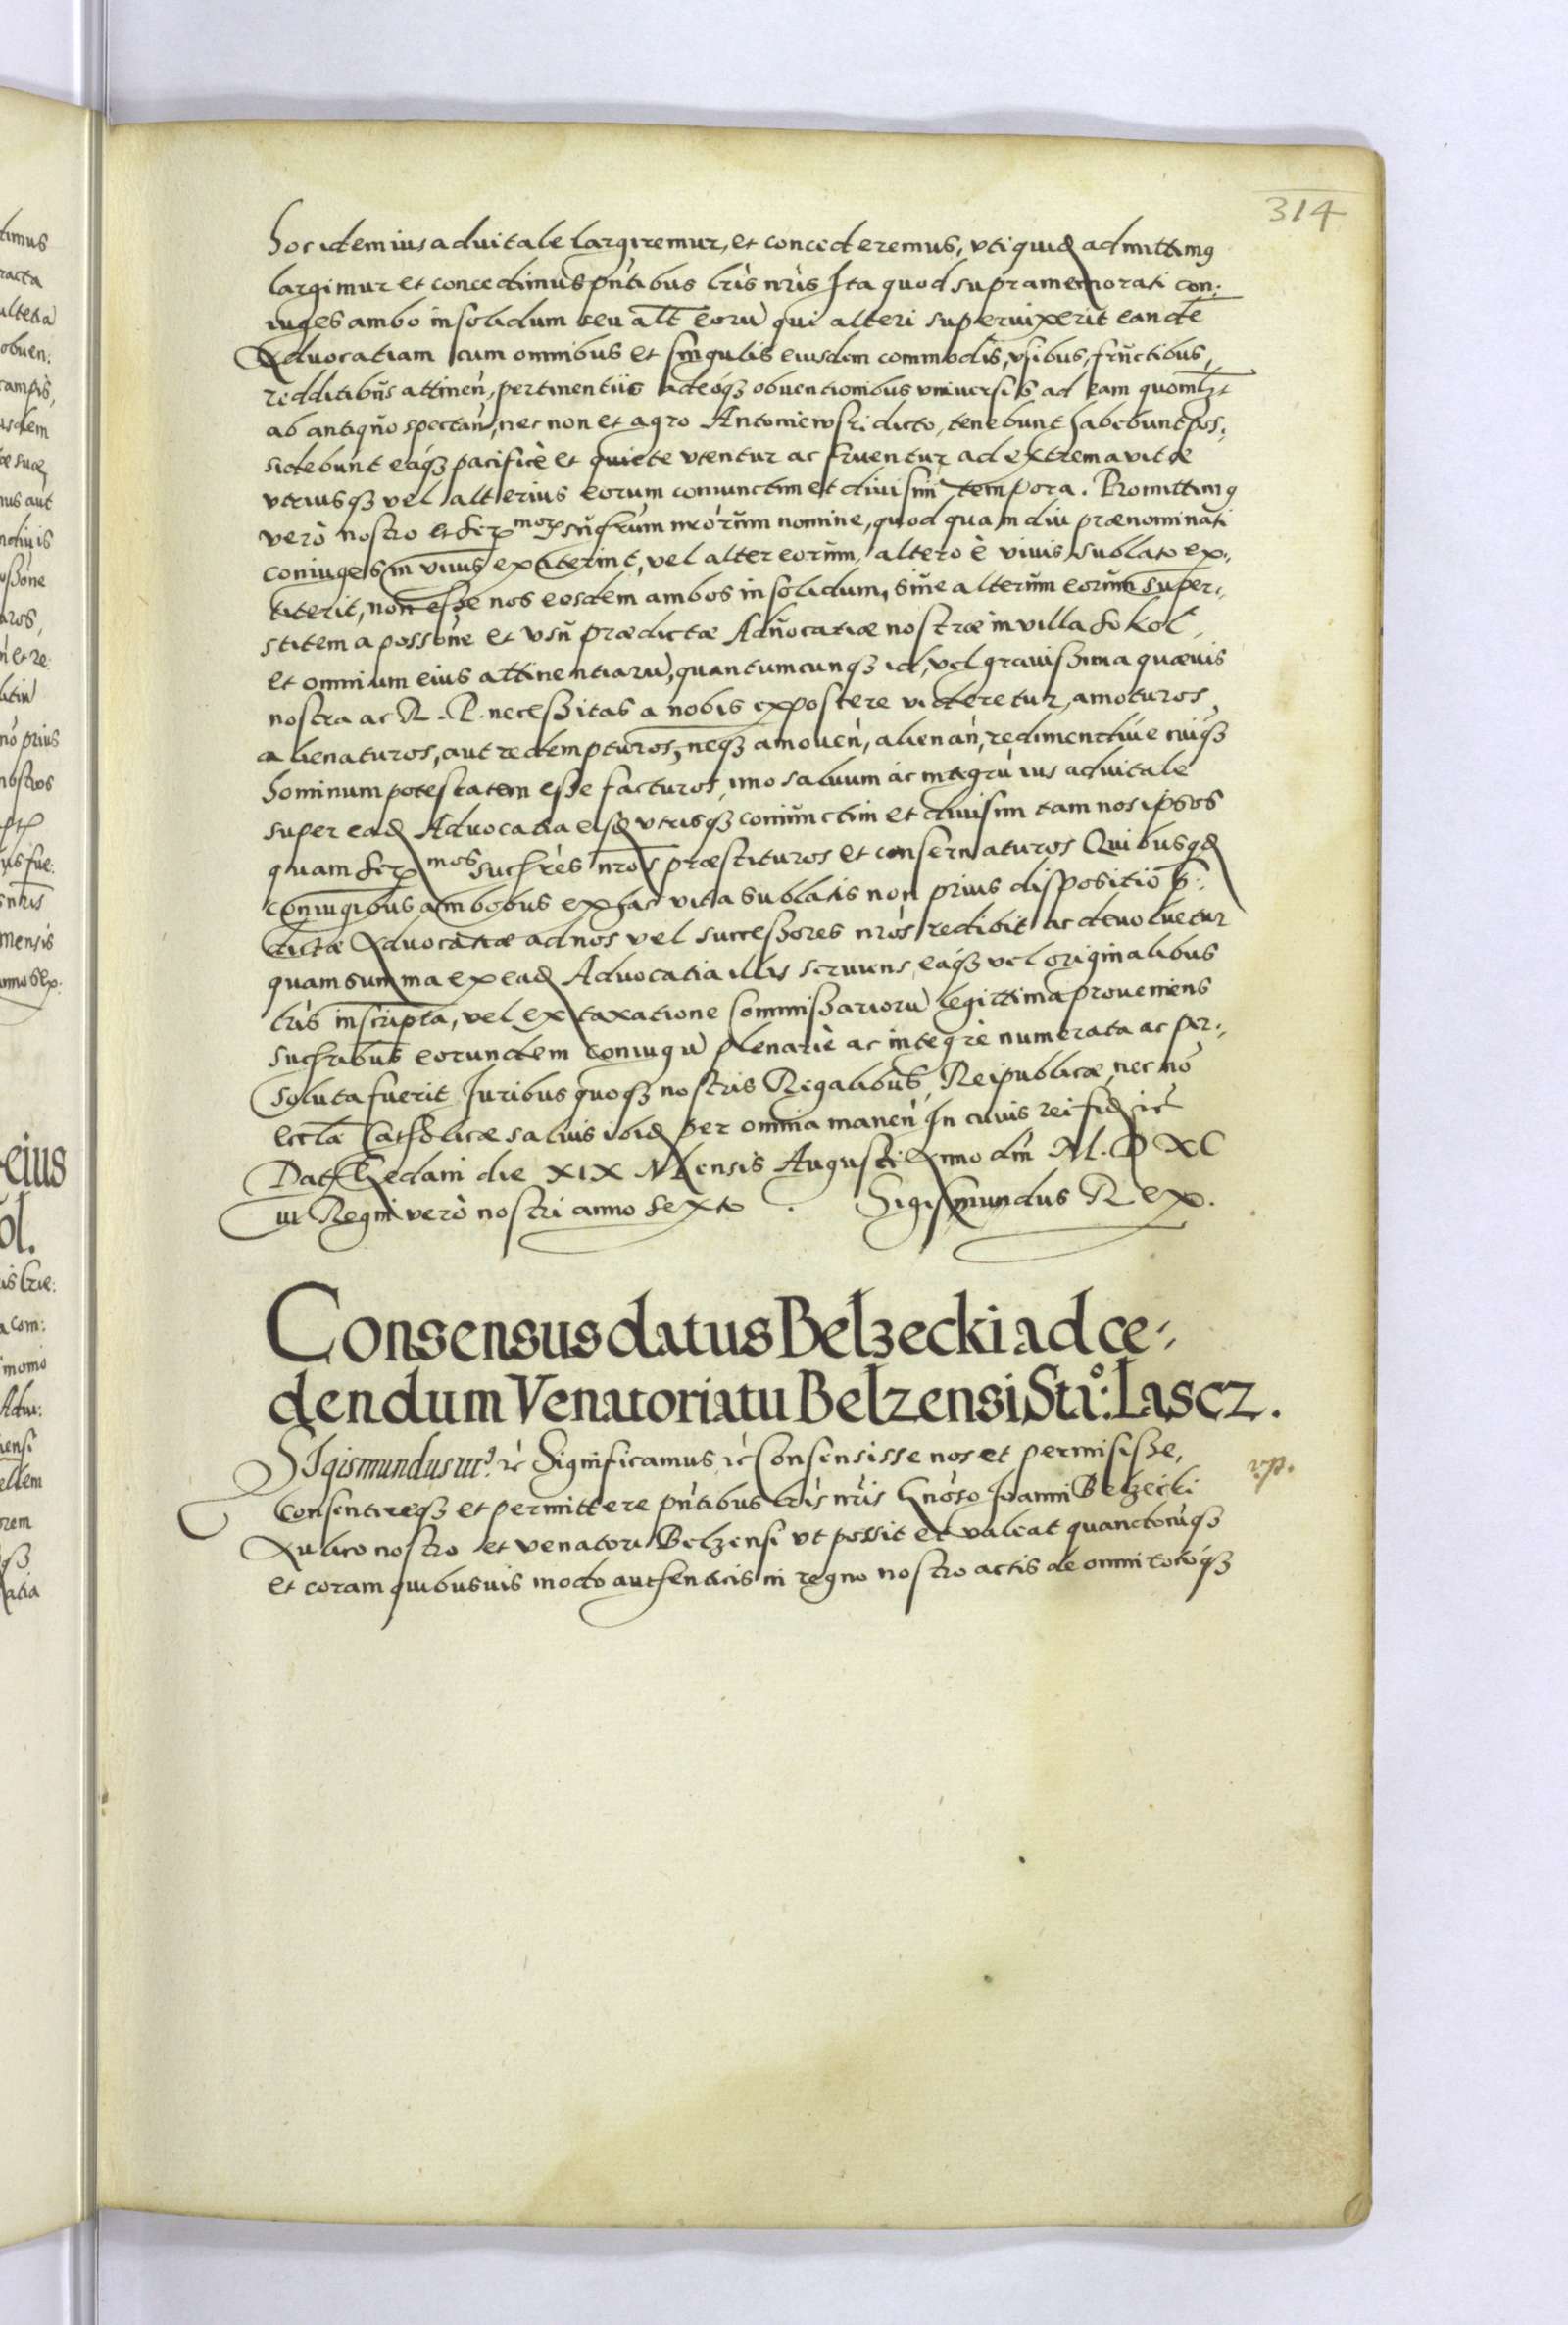 314
hoc idem ius aduitale largiremur, et concederemus, vti quidē admittimꝯ
largimur et concedimus pn̄tibus lr̄is nr̄is Ita quod supramemorati con:
iuges ambo in solidum seu alt̄ eorū qui alteri superuixerit eandē
Aduocatiam cum omnibus et singulis eiusdem commodis, vsibus, fructibus,
redditibus attinen̄, pertinentiis adeoqꝫ obuentionibus vniuersis ad eam quomlꝫt
ab antiquo spectan̄, nec non et agro Antoniewski dicto, tenebunt habebunt pos:
sidebunt eaqꝫ pacificè et quiete vtentur ac fruentur ad extrema vitæ
vtriusqꝫ vel alterius eorum coniunctim et diuisim tempora. Promittimꝯ
verò nostro et Ser. morꝝ suc̄hrum nr̄orum nomine, quod quamdiu prænominati
coniuges in viuis extiterint, vel alter eorum, altero è viuis sublato ex:
titerit, non esse nos eosdem ambos in solidum, siue alterum eorum super:
stitem a possōne et vsu prædictæ Aduocatiæ nostræ in villa Sokol,
et omnium eius attinentiarū, quantumcunqꝫ id, vel grauissima quæuis
nostra ac R. P. necessitas a nobis exposcere videretur, amoturos,
alienaturos, aut redempturos, neqꝫ amouen̄, alienan̄, redimendiue cuiqꝫ
hominum potestatem esse facturos, imo saluum ac integrū ius aduitale
super eadē Aduocatia eisdē vtrisqꝫ coniunctim et diuisim tam nos ipsos
quam Ser. mos suc̄hres nr̄os præstituros et conseruaturos Quibus qdē
coniugibus ambobus ex hac vita sublatis non prius dispositio p̄:
dictæ Aduocatiæ ad nos vel successores nr̄os redibit ac deuoluetur
quam summa ex eadē Aduocatia illis seruiens, eaqꝫ vel originalibus
lr̄is inscripta, vel ex taxatione Commissariorū legittima proueniens
suc̄hribus eorundem coniugū plenariè ac integrè numerata ac per:
soluta fuerit Iuribus quoqꝫ nostris Regalibus, Reipublicæ, nec nō
Eccl̄æ Catholicæ saluis ibidē per omnia manen̄ In cuius rei fidē &c
Dat Gedani die XIX Mensis Augusti Anno dn̄i M. D XC
iii Regni verò nostri anno Sexto. Sigismundus Rex.
Consensus datus Belzecki ad ce:
dendum Venatoriatu Belzensi Stᵒ: Lascz.
Sigismundus iiiꝯ. &c Significamus &c Consensisse nos et permisisse,
vp.
Consentireqꝫ et permittere pn̄tibus lr̄is nr̄is Gn̄oso Joanni Belzecki
Aulico nostro et venatori Belzensi vt possit et valeat quandocunqꝫ
et coram quibusuis modo authenticis in regno nostro actis de omni totoqꝫ